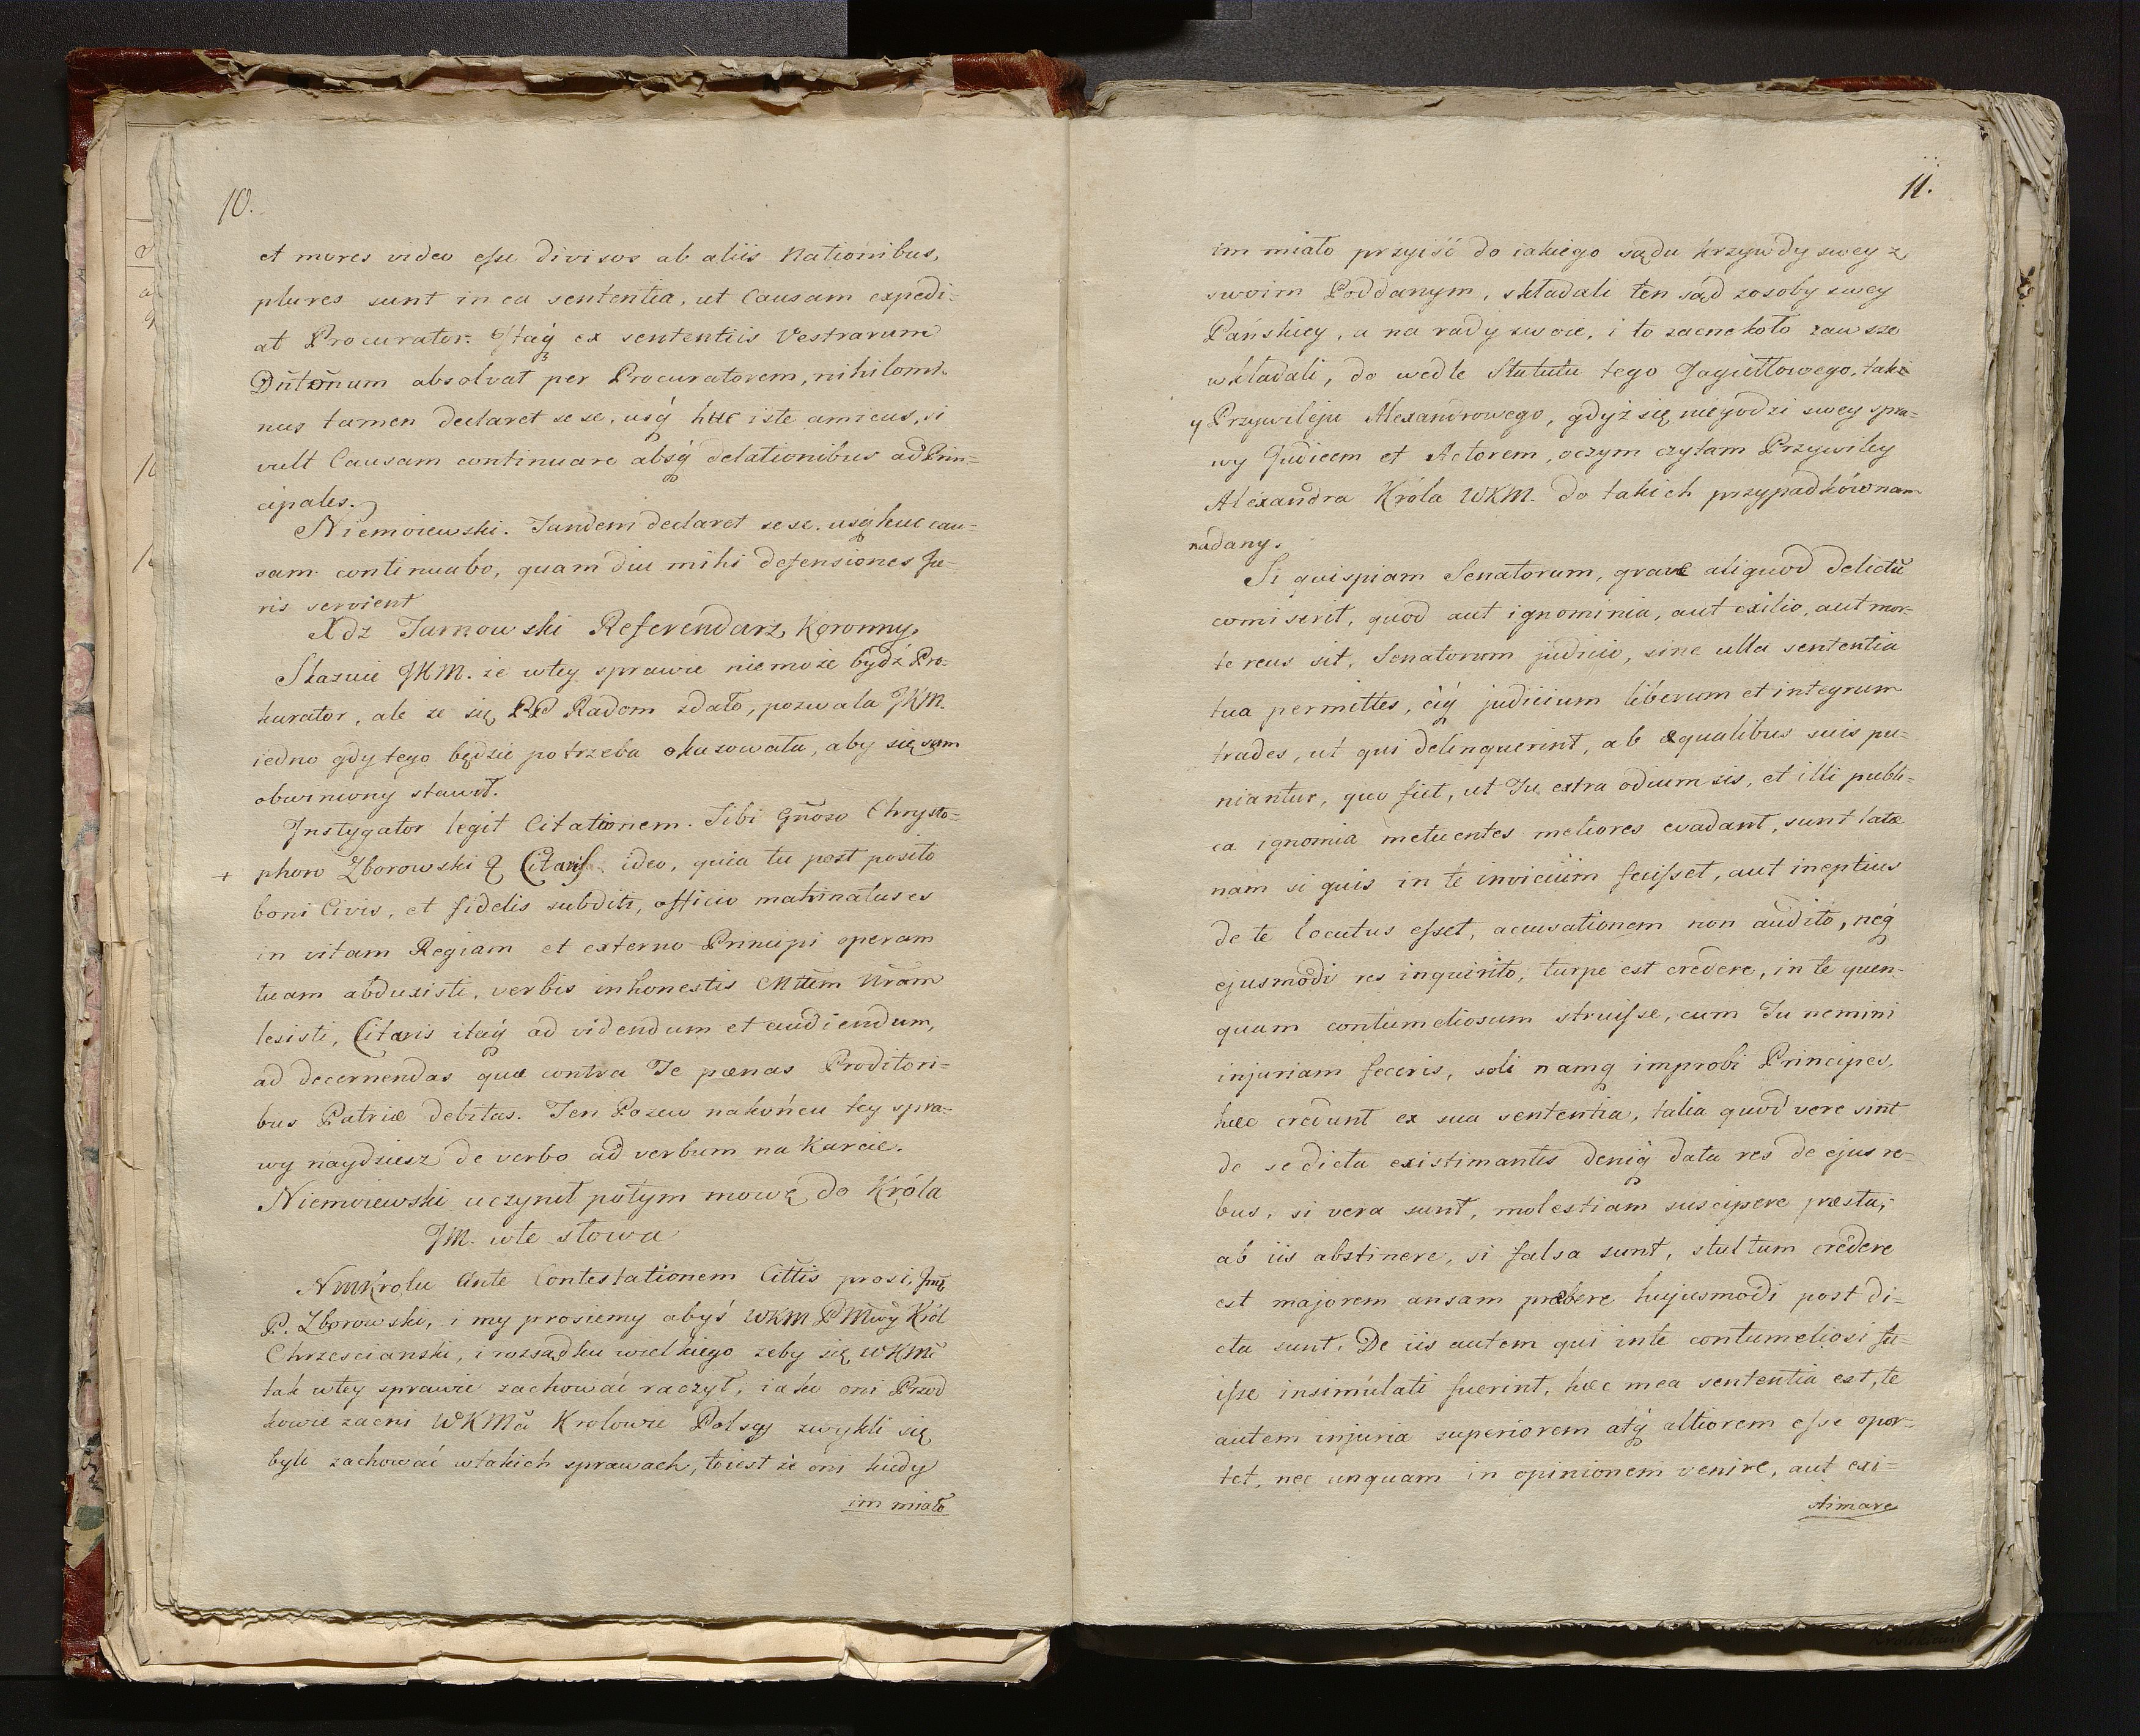 10.
et mores video esse divisos ab aliis Nationibus,
plures sunt in ea sententia, ut Causam expedi-
at Procurator. Itaq; ex sententiis Vestrarum
Dn̄tōnum absolvat per Procuratorem, nihilomi-
nus tamen declaret sese, usq; huc iste amicus, si
vult Causam continuare absq; delationibus ad Prin-
cipales.
Niemoiewski. Tandem declaret sese. usq; huc cau-
sam continuabo, quam diu mihi defensiones Ju-
ris servient
Xdz Turnowski Referendarz Koronny.
Skazuie JKM. że wtey sprawie niemoże bydź Pro-
kurator, ale ze się PP Radom zdało, pozwala JKM.
iedno gdy tego będzie potrzeba okazowała, aby się sam
obwiniony stawił.
Jnstygator legit Citationem. Tibi Gn̄oso Chrysto-
+ phoro Zborowski & Citaris ideo, quia tu post posito
boni Civis, et fidelis subditi, officio matrinatus es
in vitam Regiam et externo Principi operam
tuam abduxisti, verbis inhonestis Mttem Nram
lesisti, Citaris itaq; ad videndum et audiendum,
ad decernendas quæ contra Te pænas Proditori-
bus Patriæ debitas. Ten Pozew nakońcu tey spra-
wy naydziesz de verbo ad verbum na Karcie.
Niemoiewski uczynił potym mowę do Króla
JM. wte słowa
NMKrolu Ante Contestationem Littis prosi, Jmę
P. Zborowski, i my prosiemy abyś WKM PMwy Król
Chrzescianski, i rozsądku wielkiego zeby się WKMć
tak wtey sprawie zachować raczył, iako oni Przod
kowie zacni WKMći Krolowie Polscy zwykli się
byli zachować wtakich sprawach, toiest że oni kiedy
im miało
11.
im miało przyiść do iakiego sądu krzywdy swey z
swoim Poddanym, składali ten sąd zosoby swey
Pańskiey, a na rady swoie, i to zacne koło zawsze
wkładali, do wedle Statutu tego Jagiełłowego, tak
y Przywileju Alexandrowego, gdyż się niegodzi swey spra-
wy Judicem et Actorem, oczym czytam Przywiley
Alexandra Króla WKM. do takich przypadków nam
nadany.
Si quispiam Senatorum, grave aliquod delictū
comiserit, quod aut ignominia, aut exilio, aut mor-
te reus sit, Senatorum judicio, sine ulla sententia
tua permittes, eiq; judicium liberum et integrum
trades, ut qui delinquerint, ab æqualibus suis pu-
niantur, quo fiet, ut Tu extra odium sis, et illi publi-
ca ignomia metuentes meliores evadant, sunt latæ
nam si quis in te inviciūm fecisset, aut ineptius
de te locutus esset, accusationem non audito, neq;
ejusmodi res inquirito, turpe est credere, in te quen-
quam contumeliosum struisse, cum Tu nemini
injuriam feceris, soli namq; improbi Principes,
hæc credunt ex sua sententia, talia quod vere sint
de se dicta existimantes deniq; data res de ejus re-
bus, si vera sunt, molestiam suscipere præsta;
ab iis abstinere, si falsa sunt, stultum credere
est majorem ansam præbere hujusmodi post di-
cta sunt. De iis autem qui inte contumeliosi fu-
isse insimulati fuerint, hæc mea sententia est, te
autem injuria superiorem atq; altiorem esse opor-
tet, nec unquam in opinionem venire, aut exi-
stimare